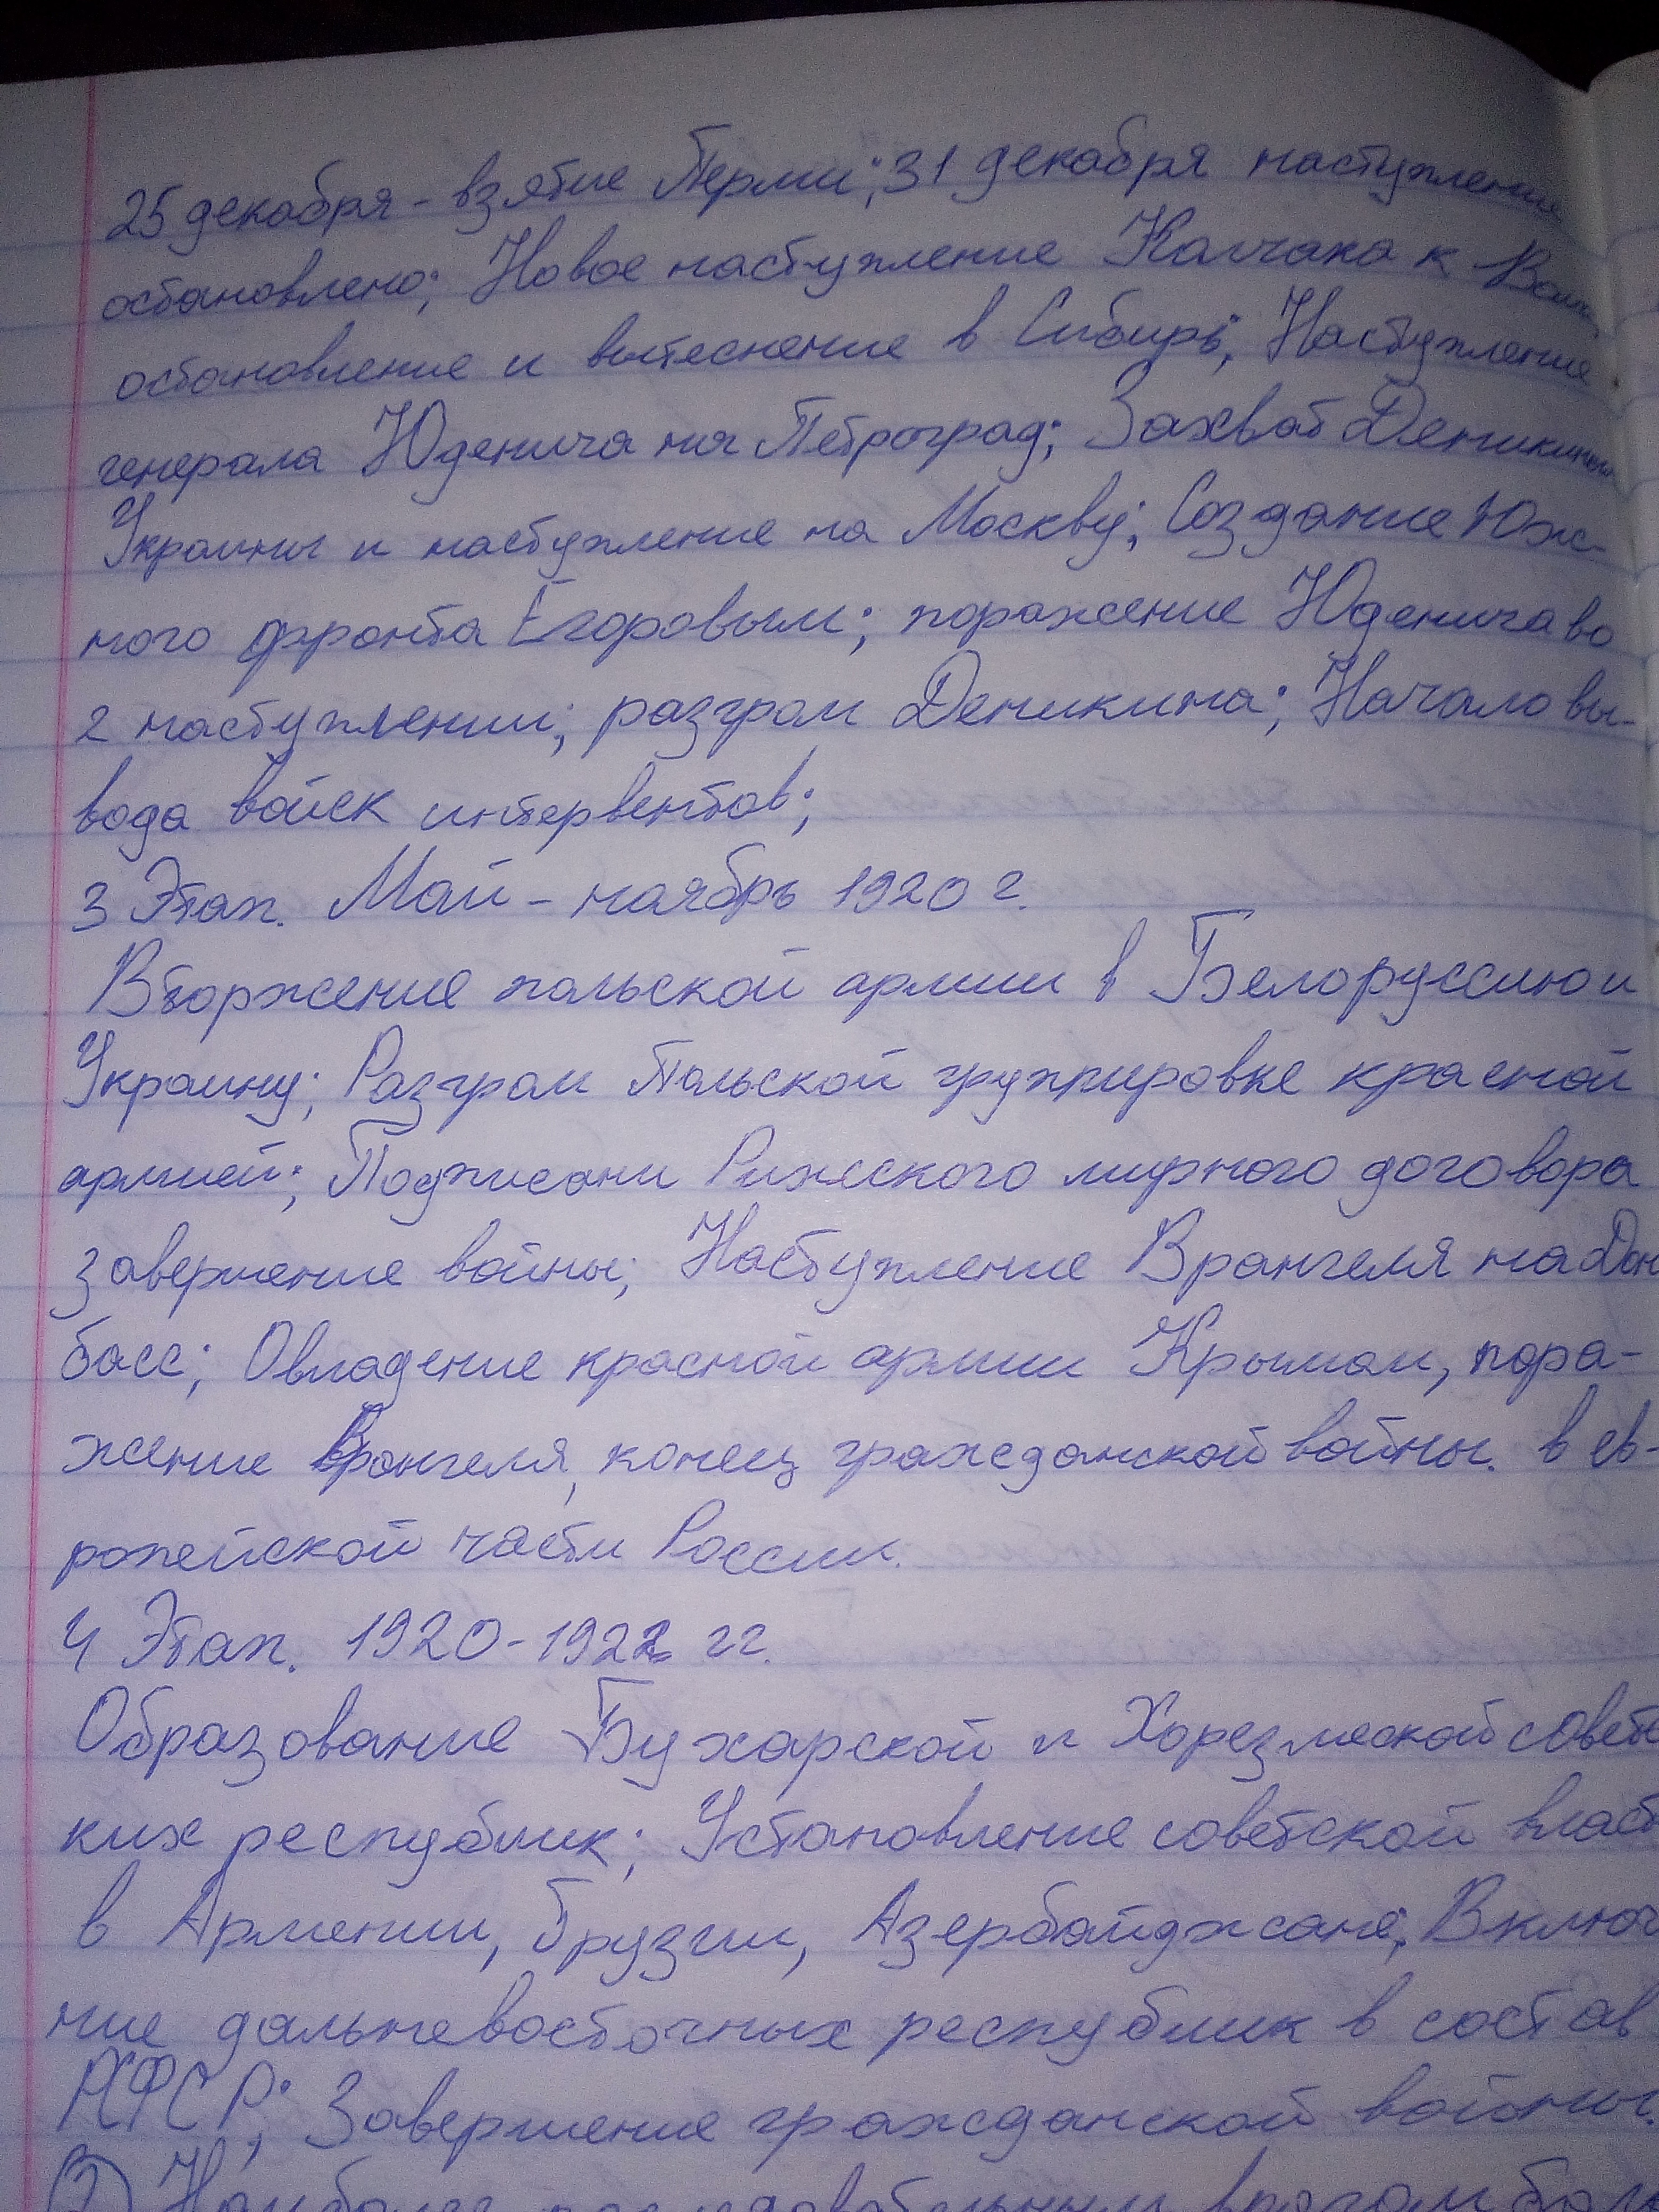 25 декабря - взятие Перми; 31 декабря наступление
остановлено; Новое наступление Колчака к
остановление и вытеснение в Сибирь; Наступление
генерала Юденича на Петроград; Захват Деникиным
Украины и наступление на Москву; Создание Юж-
ного фронта Егоровым; поражение Юденича во
2 наступлении; разгром Деникина; Начало вы-
вода войск интервентов;
3 Этап. Май - ноябрь 1920 г.
Вторжение польской армии в Белоруссию и
Украину; Разгром Польской группировке красной
армией; Подписани Рижского мирного договора
завершение войны; Наступление Врангеля на Дон
басс; Овладение красной армии Крымом, пора-
жение Врангеля, конец гражданской войны. в ев-
ропейской части России.
4 Этап. 1920-1922 гг.
Образование Бухарской и Хорезмской советс
ких республик; Установление советской власт
в Армении, Грузии, Азербайджане; Включ
ние дальневосточных республик в состав
РСФСР; Завершение гражданской войны.